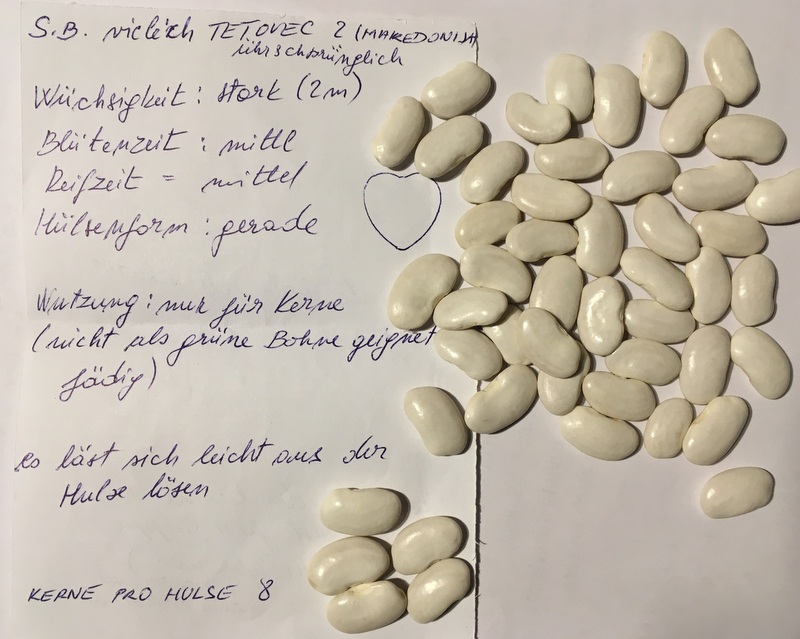 S.B. vielleich TETOVEC 2 (MAKEDONIJA
uhrschprünglich
Wüchsigkeit: stark (2m)
Blütenzeit: mittl
Reifzeit = mittel
Hülsenform: gerade
Nutzung: nur für Kerne
(nicht als grüne Bohne geignet
fädig)
es läst sich leicht aus der
Hulse lösen
KERNE PRO HULSE 8